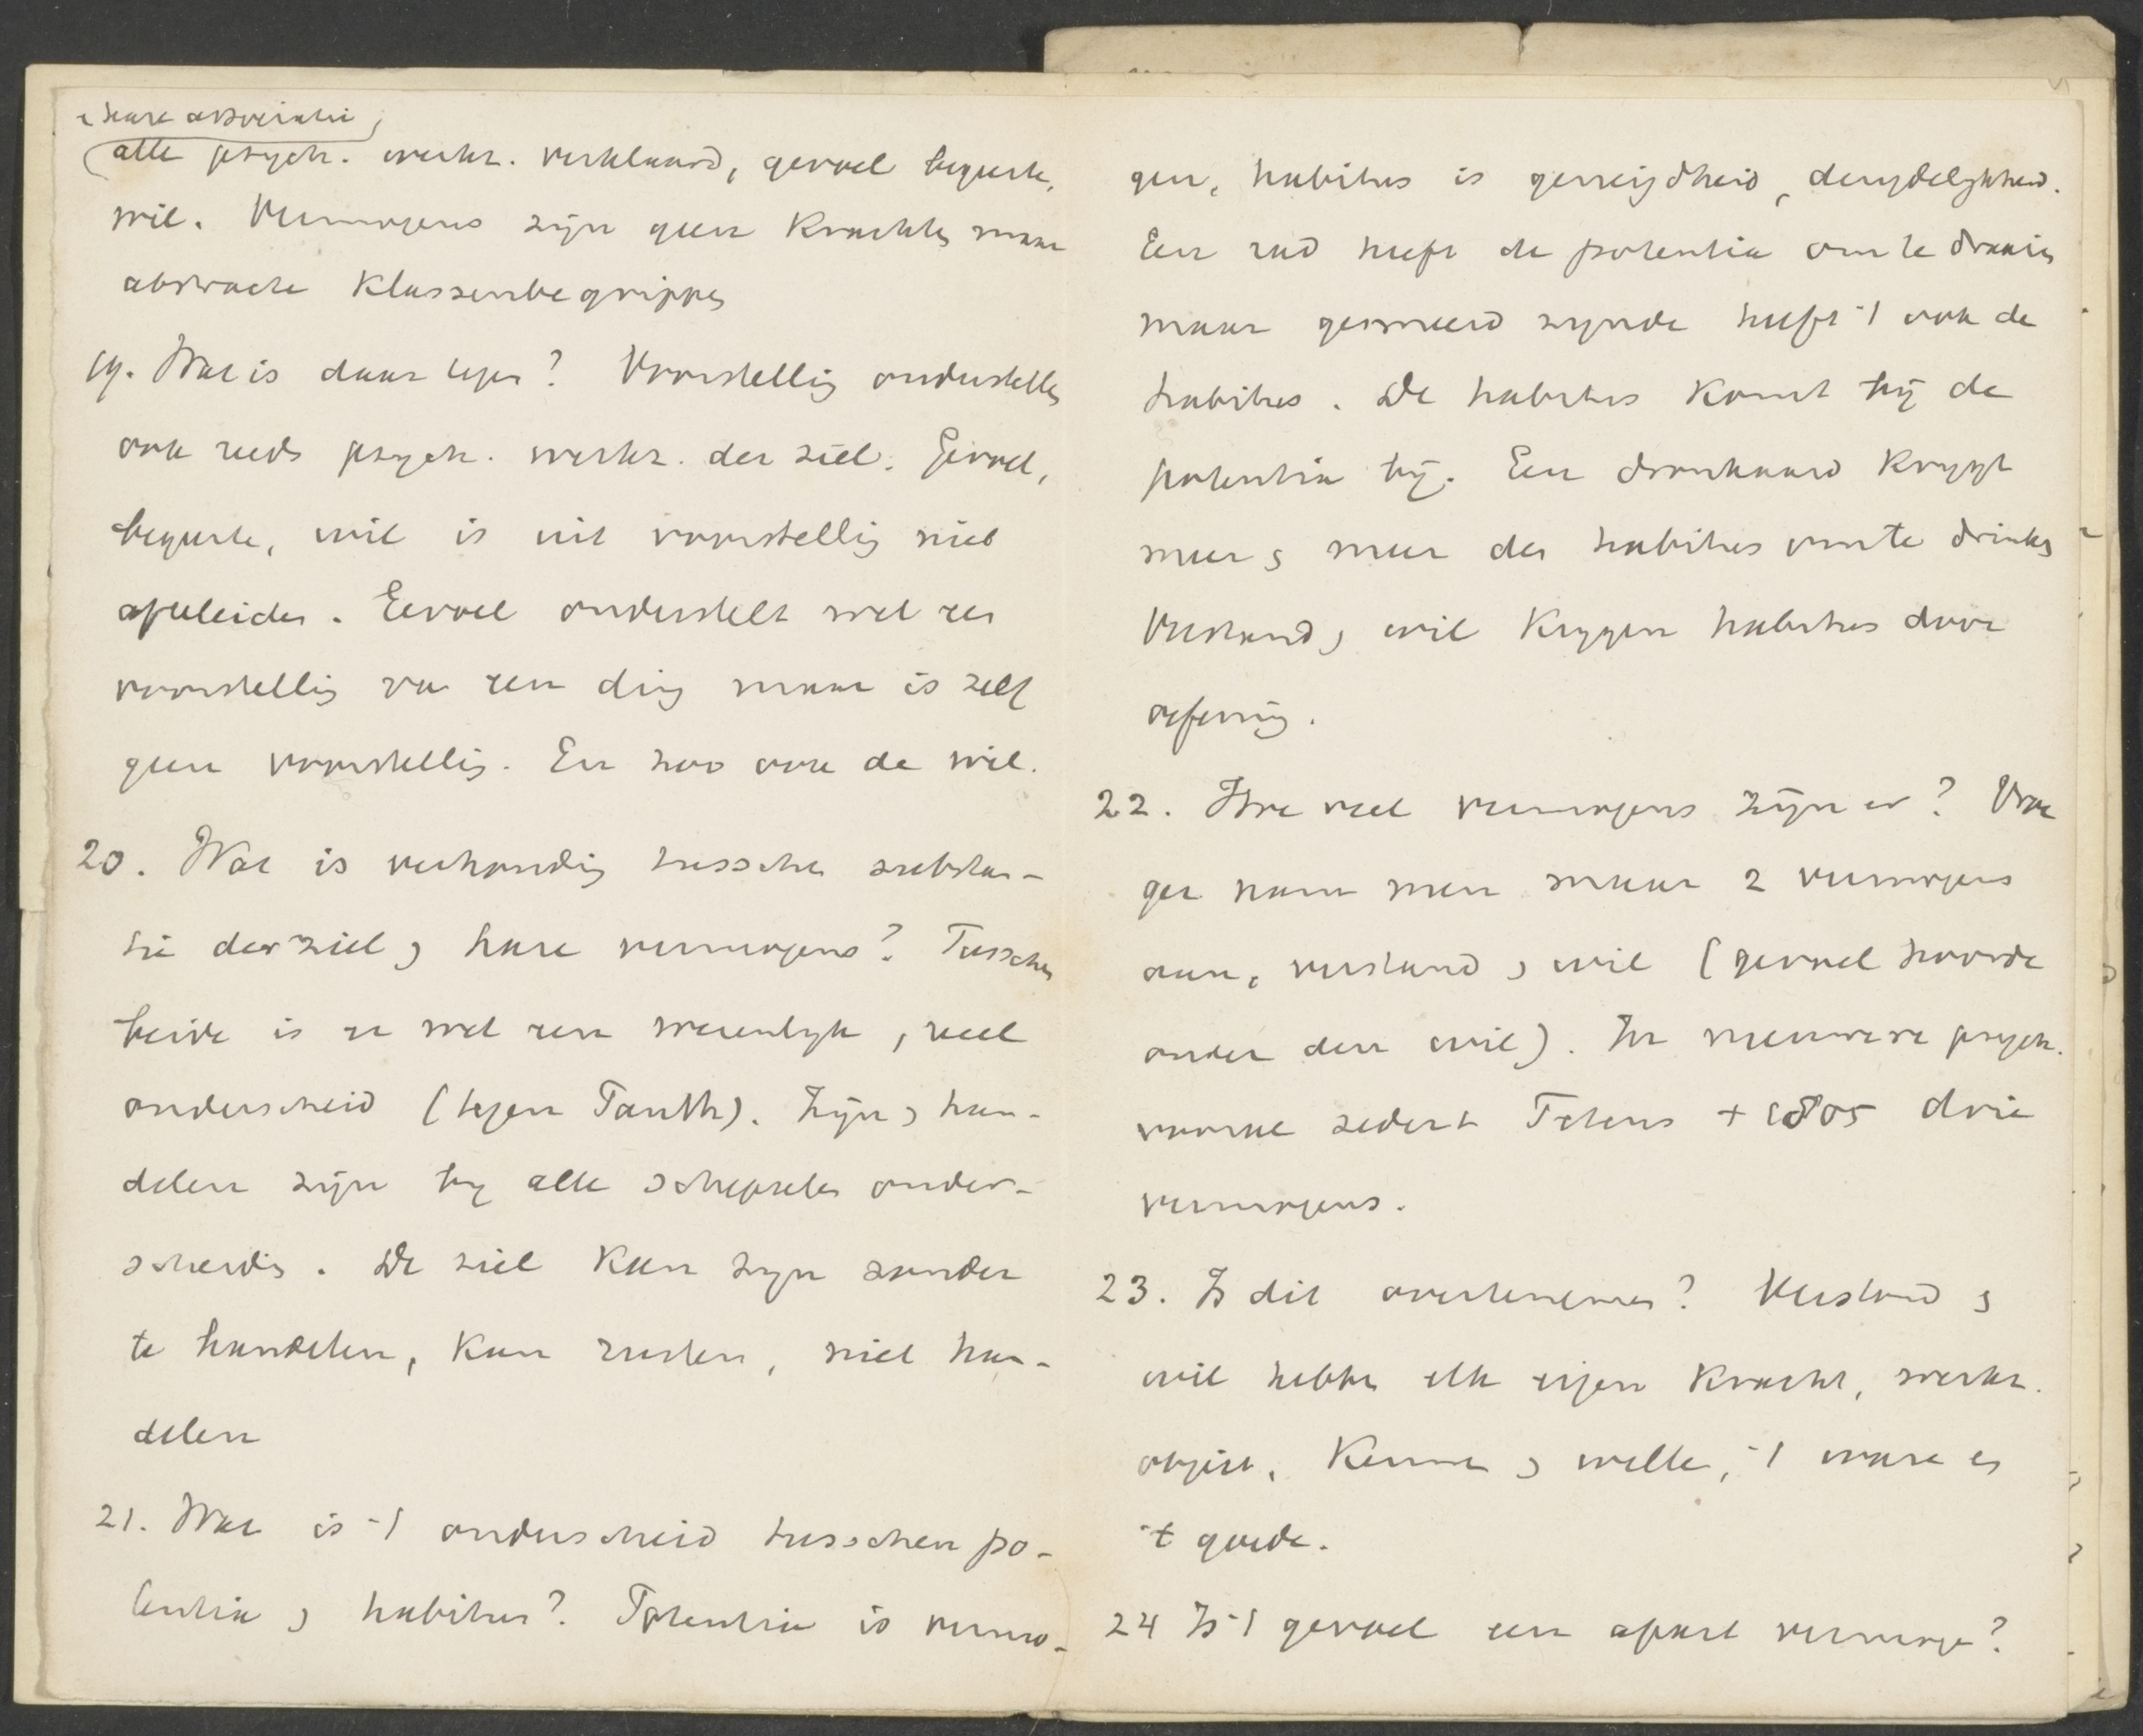 & hare associatie
alle psych. werkz. verklaard, gevoel begeerte,
wil. Vermogens zijn geen krachten maar
abstracte klassenbegrippen
19. Wat is daar tegen? Voorstelling onderstelt
ook reeds psych. werkz. der ziel. Gevoel,
begeerte, wil is uit voorstelling niet
afteleiden. Gevoel onderstelt wel een
voorstelling van een ding maar is zelf
geen voorstelling. En zoo ook de wil.
20. Wat is verhouding tusschen substan-
tie der ziel & hare vermogens? Tusschen
beide is er wel een wezenlyk, reel
onderscheid (tegen Panth). Zijn & han-
delen zijn by alle schepselen onder-
scheiden. De ziel kan zyn zonder
te handelen, kan rusten, niet han-
delen
21. Wat is 't onderscheid tusschen po-
tentia & habitus? Potentia is vermo-
gen, habitus is geneigdheid,
Een rad heeft de potentia om te draaien
maar gesmeerd zynde heeft 't ook de
habitus. De habitus komt bij de
potentia bij. Een dronkaard krygt
meer & meer den habitus om te drinken
Verstand & wil krygen habitus door
oefening.
22. Hoe veel vermogens zijn er? Vroe
ger nam men maar 2 vermogens
aan, verstand & wil (gevoel hoorde
onder den wil). In nieuwere psych.
vooral sedert Tetens + 1805 drie
vermogens.
23. Is dit overtenemen? Verstand &
wil hebben elk eigen kracht, werkz.
object, kennen & willen, 't ware en
't goede.
24 Is 't gevoel een apart vermogen?